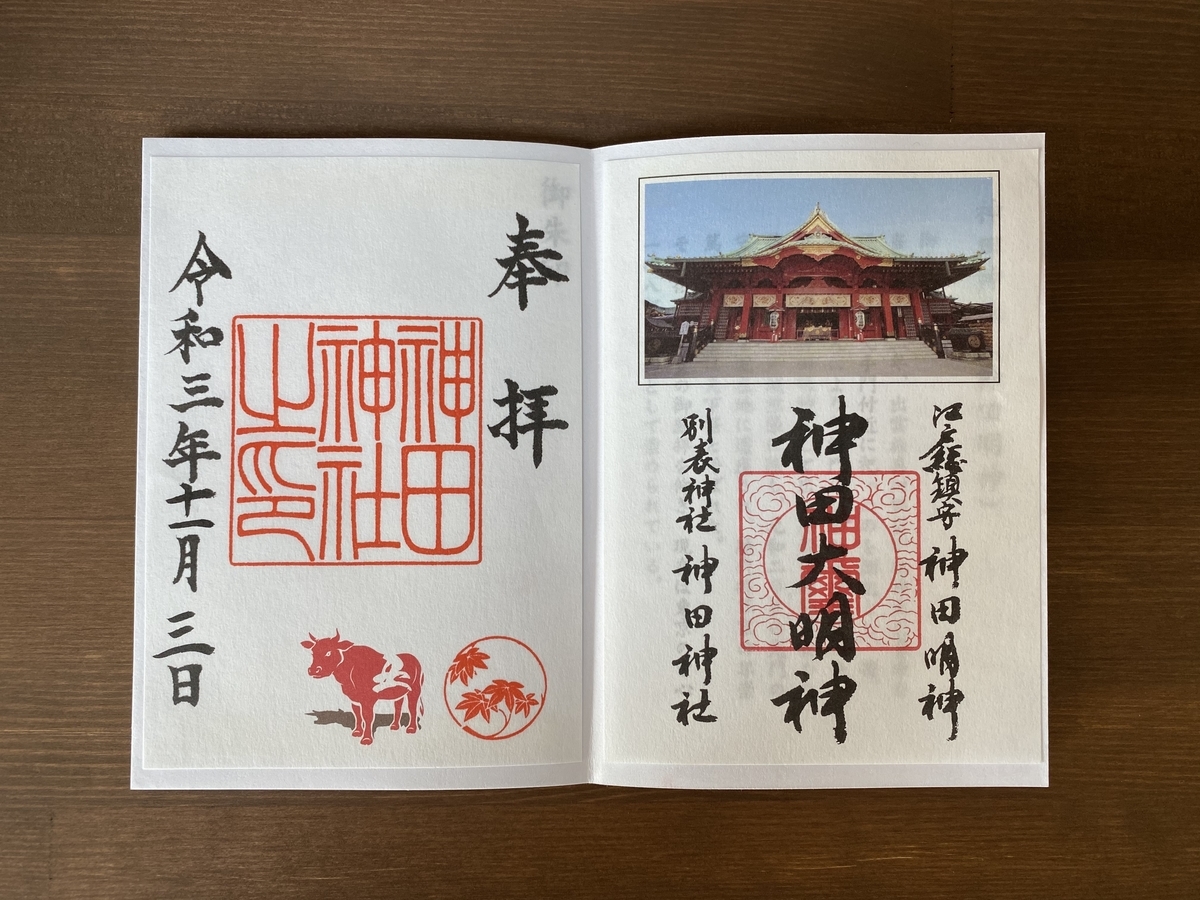 江戸総鎮守 神田明神
神田大明神
別表神社 神田神社
奉拝
神田
神社
之印
令和三年十一月三日